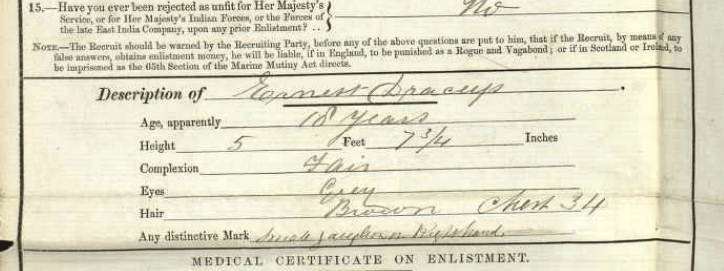 15.—Have you ever been rejected as unfit for Her Majesty's
Service, or for Her Majesty's Indian Forces, or the Forces of
the late East India Company, upon any prior Enlistment? .. No
NOTE.—The Recruit should be warned by the Recruiting Party, before any of the above questions are put to him, that if the Recruit, by means of any
false answers, obtains enlistment money, he will be liable, if in England, to be punished as a Rogue and Vagabond; or if in Scotland or Ireland, to
be imprisoned as the 65th Section of the Marine Mutiny Act directs.
Description of Ernest
Age, apparently 18 Years
Height 5 Feet 7 3/4 Inches
Complexion Fair
Eyes Grey
Hair Brown Chest 34
Any distinctive Mark hand
MEDICAL CERTIFICATE ON ENLISTMENT.